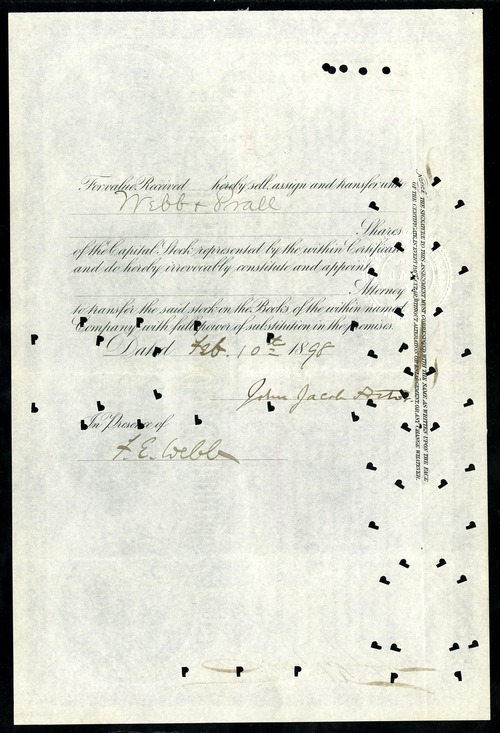 For value Received hereby sell, assign and transfer unto
Webb & Prall
Shares
of the Capital Stock represented by the within Certificate
and do hereby irrevocably constitute and appoint
Attorney
to transfer the said stock on the Books of the within named
Company with full power of substitution in the premises.
Dated Feb. 10th 1898
John Jacob Astor
In Presence of
F. E. Webb
NOTICE. THE SIGNATURE TO THIS ASSIGNMENT MUST CORRESPOND WITH THE NAME AS WRITTEN UPON THE FACE
OF THE CERTIFICATE IN EVERY PARTICULAR WITHOUT ALTERATION OR ENLARGEMENT OR ANY CHANGE WHATEVER.